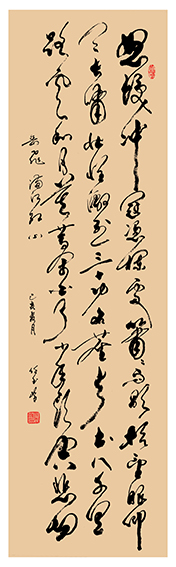 怒髮冲冠憑欄處瀟々雨歇抬望眼仰
天長嘯壯懷激烈三十功名塵與土八千里
路雲和月莫等閑白了少年頭空悲切
岳飛滿江紅